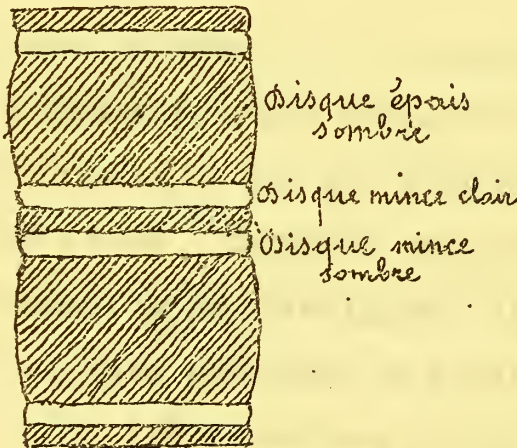 Disque épais
sombre
Disque mince clair
Disque mince
sombre